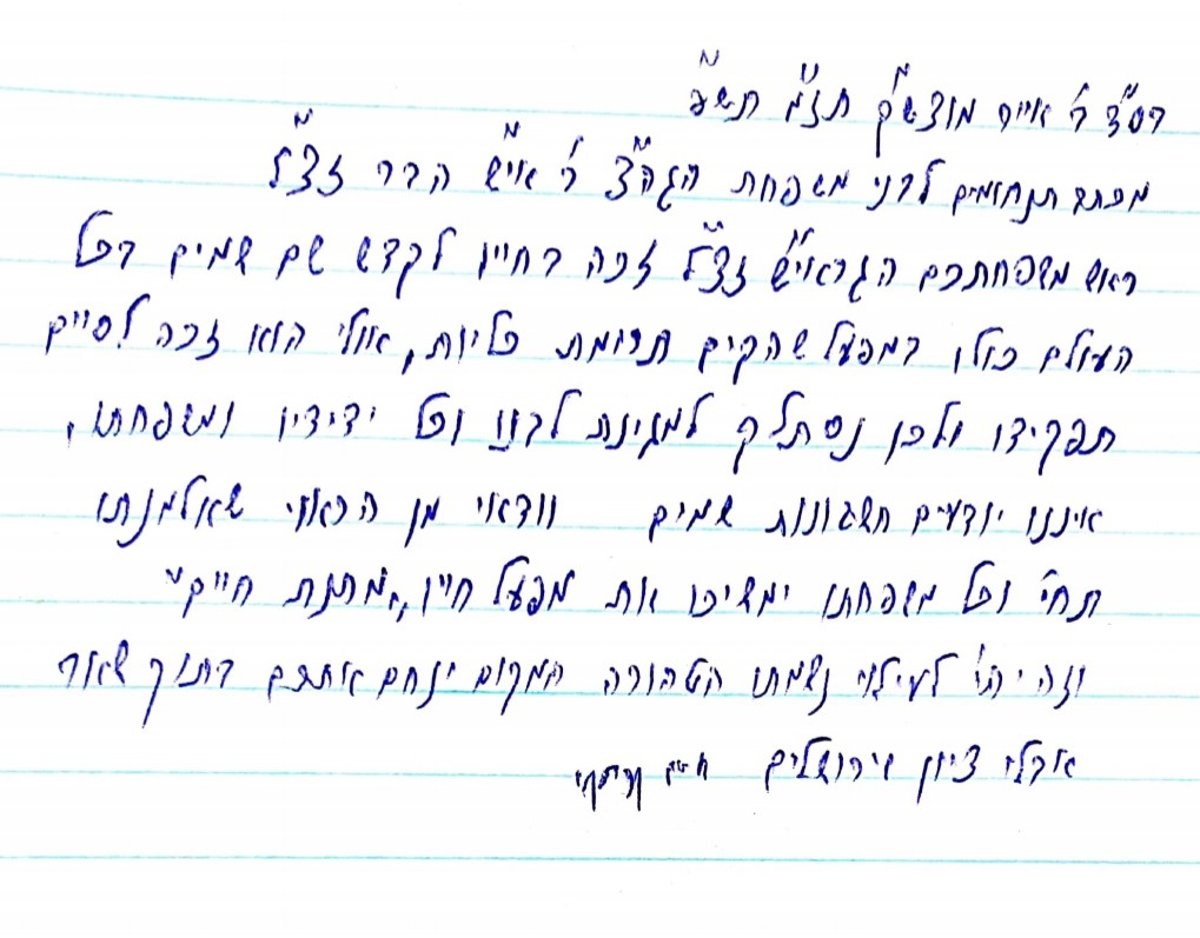 בס"ד ב' אייר מוצש"ק תזו"מ תש"פ
מכתב תנחומים לבני משפחת הגה"צ ר' אוי"ש הבר זצ"ל
ראש משפחתכם הגראוי"ש זצ"ל זכה בחייו לקדש שם שמים בכל
העולם כולו במפעל שהקים תרומת כליות, אולי הוא זכה לסיים
תפקידו ולכן נסתלק למגינת לבנו וכל ידידיו ומשפחתו,
איננו יודעים חשבונות שמים וודאי מן הראוי שאלמנתו
תחי' וכל משפחתו ימשיכו את מפעל חייו „מתנת חיים"
וזה יהי' לעילוי נשמתו הטהורה המקום ינחם אתכם בתוך שאר
אבלי ציון וירושלים חיים קניבסקי